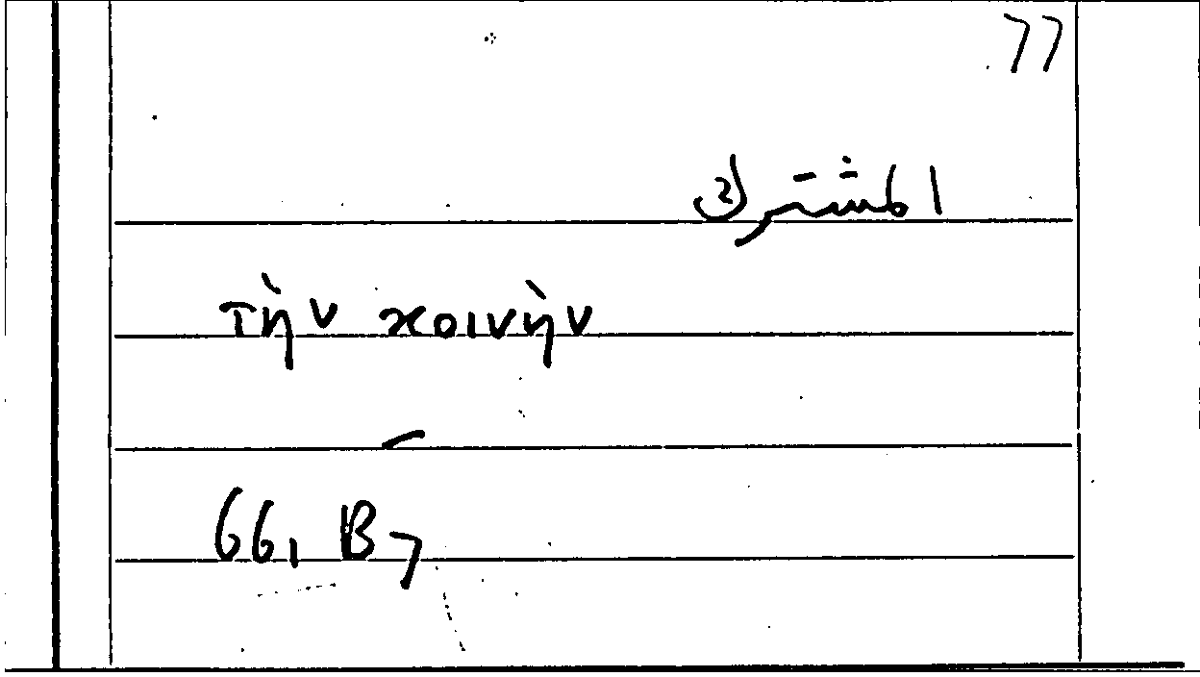 77
المشترك
τὴν κοινὴν
66, B7